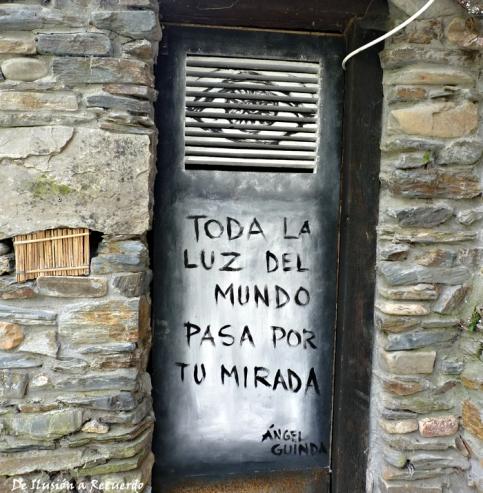 TODA LA
LUZ DEL
MUNDO
PASA POR
TU MIRADA
ÁNGEL
GUINDA
De Ilusión a Recuerdo